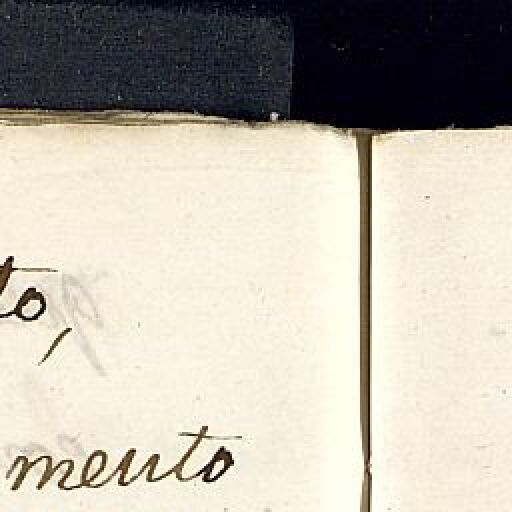 to,
mento